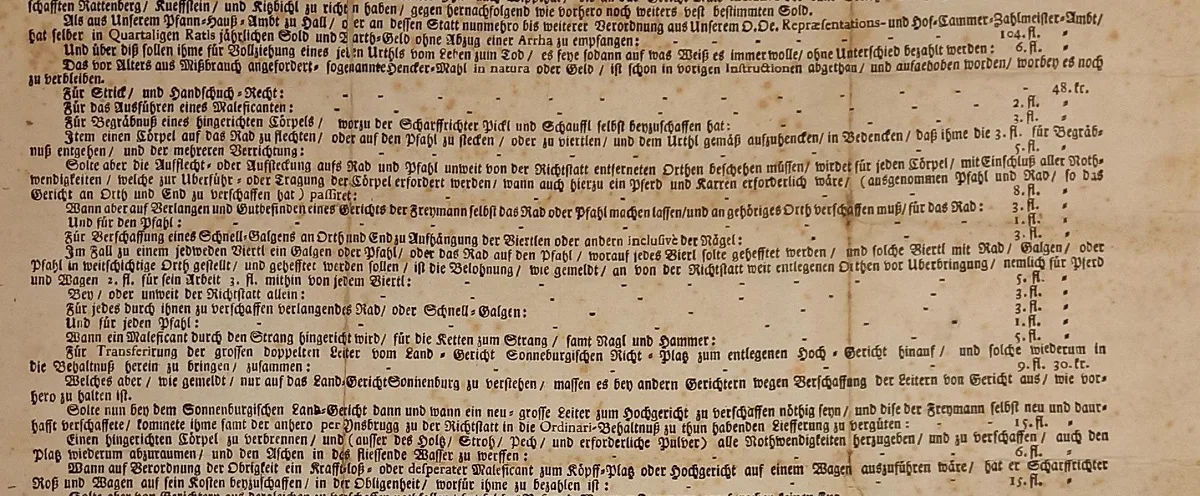 schafften Rattenberg/ Kueffstein/ und Kitzbichl zu richten haben/ gegen hernachfolgend wie vorhero noch weiters vest bestimmten Sold.
Als aus Unserem Pfann-Hauß-Ambt zu Hall/ oder an dessen Statt nunmehro bis weiterer Verordnung aus Unserem O.Oe. Repræsentations-und Hof-Cammer-Zahlmeister-Ambt/
hat selber in Quartaligen Ratis jährlichen Sold und Warth-Geld ohne Abzug einer Arrha zu empfangen: - - - - - - 104.fl. "
Und über diß sollen ihme für Vollziehung eines jeden Urthls vom Leben zum Tod/ es seye sodann auf was Weiß es immer wolle/ ohne Unterschied bezahlt werden: 6.fl. "
Das vor Alters aus Mißbrauch angefordert- sogenannte Hencker-Mahl in natura oder Geld/ ist schon in vorigen Instructionen abgethan/ und aufgehoben worden/ worbey es noch
zu verbleiben.
Für Strick/ und Handschuch-Recht: - - - - - - - - 48.kr.
Für das Ausführen eines Maleficanten: - - - - - - - 2.fl. "
Für Begräbnuß eines hingerichten Cörpels/ worzu der Scharffrichter Pickl und Schauffl selbst beyzuschaffen hat: - - - 3.fl. "
Item einen Cörpel auf das Rad zu flechten/ oder auf den Pfahl zu stecken/ oder zu viertlen/ und dem Urthl gemäß aufzuhencken/ in Bedencken/ daß ihme die 3.fl. für Begräb-
nuß entgehen/ und der mehreren Verrichtung: - - - - - - 5.fl. "
Solte aber die Aufflecht- oder Aufsteckung aufs Rad und Pfahl unweit von der Richtstatt entferneten Orthen beschehen müssen/ wirdet für jeden Cörpel/ mit Einschluß aller Noth-
wendigkeiten/ welche zur Uberführ- oder Tragung der Cörpel erfordert werden/ wann auch hierzu ein Pferd und Karren erforderlich wäre/ (ausgenommen Pfahl und Rad/ so das
Gericht an Orth und End zu verschaffen hat) passiret: - - - - - - 8.fl. "
Wann aber auf Verlangen und Gutbefinden eines Gerichts der Freymann selbst das Rad oder Pfahl machen lassen/und an gehöriges Orth verschaffen muß/ für das Rad: 3.fl. "
Und für den Pfahl: - - - - - - - - 1.fl. "
Für Verschaffung eines Schnell-Galgens an Orth und End zu Aufhängung der Viertlen oder andern inclusivè der Nägel: - - - 3.fl. "
Im Fall zu einem jedweden Viertl ein Galgen oder Pfahl/ oder das Rad auf den Pfahl/ worauf jedes Viertl solte gehefftet werden/ und solche Viertl mit Rad/ Galgen/ oder
Pfahl in weitschichtige Orth gestellt/ und gehefftet werden sollen/ ist die Belohnung/ wie gemeldt/ an von der Richtstatt weit entlegenen Orthen vor Uberbringung/ nemlich für Pferd
und Wagen 2. fl. für sein Arbeit 3. fl. mithin von jedem Viertl: - - - - - - 5. fl. "
Bey/ oder unweit der Richtstatt allein: - - - - - - - 3.fl. "
Für jedes durch ihnen zu verschaffen verlangendes Rad/ oder Schnell-Galgen: - - - - - 3.fl. "
Und für jeden Pfahl: - - - - - - - - 1.fl. "
Wann ein Maleficant durch den Strang hingericht wird/ für die Ketten zum Strang/ samt Nagl und Hammer: - - - 5.fl. "
Für Transferirung der grossen doppelten Leiter vom Land-Gericht Sonneburgischen Richt-Platz zum entlegenen Hoch-Gericht hinauf/ und solche wiederum in
die Behaltnuß herein zu bringen/ zusammen: - - - - - - 9.fl. 30.kr.
Welches aber/ wie gemeldt/ nur auf das Land-Gericht Sonnenburg zu verstehen/ massen es bey andern Gerichtern wegen Verschaffung der Leitern von Gericht aus/ wie vor-
hero zu halten ist.
Solte nun bey dem Sonnenburgischen Land-Gericht dann und wann ein neu-grosse Leiter zum Hochgericht zu verschaffen nöthig seyn/ und dise der Freymann selbst neu und daur-
hafft verschaffete/ kommete ihme samt der anhero per Ynsbrugg zu der Richtstatt in die Ordinari-Behaltnuß zu thun habenden Liefferung zu vergüten: - 15.fl. "
Einen hingerichten Cörpel zu verbrennen/ und (ausser des Holtz/ Stroh/ Pech/ und erforderliche Pulver) alle Nothwendigkeiten herzugeben/ und zu verschaffen/ auch den
Platz wiederum abzuraumen/ und den Aschen in das fliessende Wasser zu werffen: - - - - - 6.fl. "
Wann auf Verordnung der Obrigkeit ein Krafftloß- oder desperater Maleficant zum Köpff-Platz oder Hochgericht auf einem Wagen auszuführen wäre/ hat er Scharffrichter
Roß und Wagen auf sein Kosten beyzuschaffen/ in der Obligenheit/ worfür ihme zu bezahlen ist: - - - - 15.fl. "